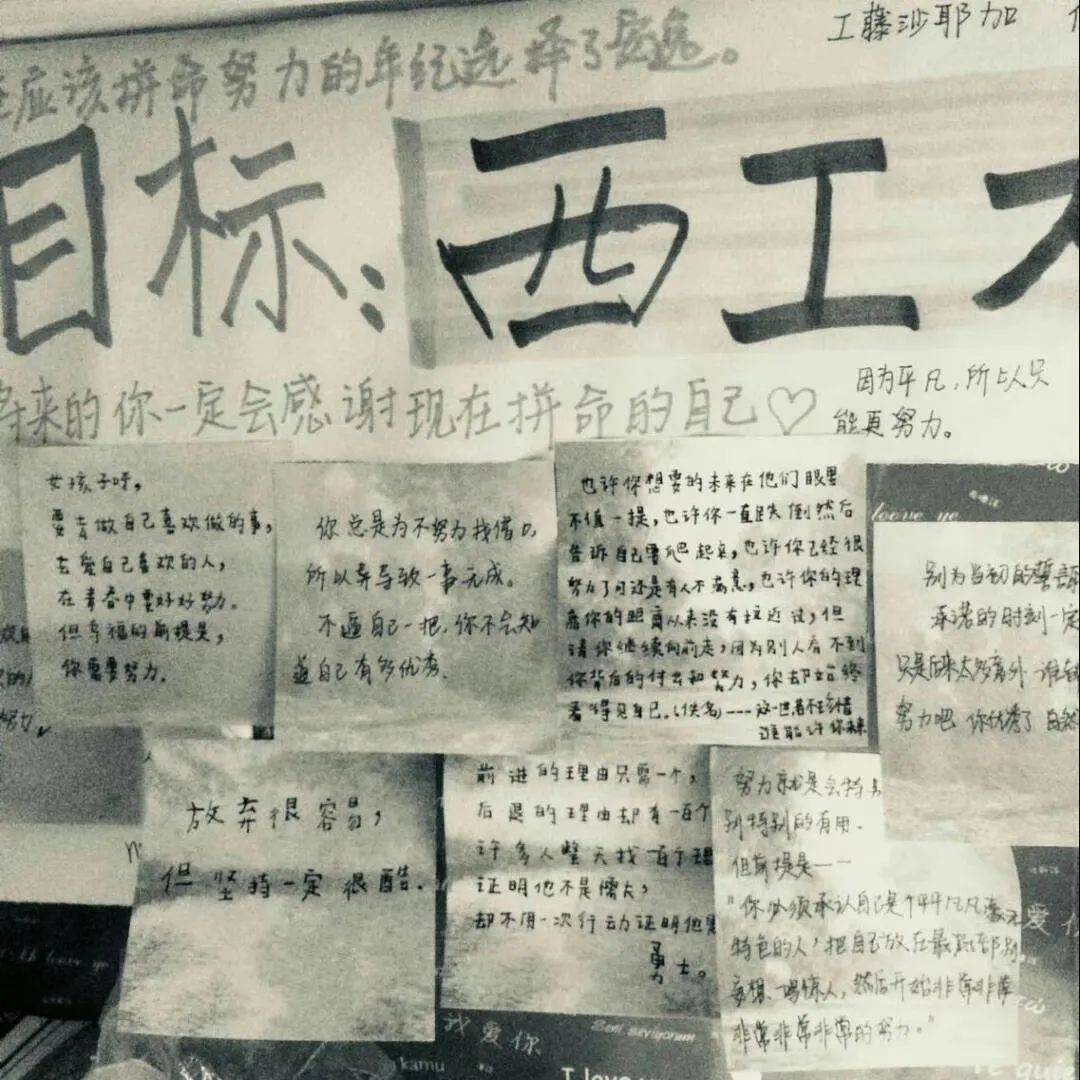 工藤沙耶加
应该拼命努力的年纪选择了安逸。
目标:西工大
将来的你一定会感谢现在拼命的自己♡
因为平凡,所以只
能更努力。
女孩子呀,
要去做自己喜欢做的事,
去爱自己喜欢的人,
在青春中要好好努力。
但幸福的前提是,
你需要努力。
你总是为不努力找借口,
所以导致一事无成。
不逼自己一把,你不会知
道自己有多优秀。
也许你想要的未来在他们眼里
不值一提,也许你一直跌倒然后
告诉自己要爬起来,也许你已经很
努力了可还是有人不满意,也许你的理
想离你的距离从来没有拉近过,但
请你继续向前走,因为别人看不到
你背后的付出和努力,你却始终
看得见自己。(佚名)---这一世若不珍惜
谁能许你未来
loove ye
别为当初的誓
承诺的时刻一定
只是后来太多意外 谁
努力吧 你优秀了 自然
放弃很容易,
但坚持一定很酷.
前进的理由只需一个,
后退的理由却有一百个
许多人整天找一百个理
证明他不是懦夫,
却不用一次行动证明他是
勇士。
努力就是会特
别特别的有用.
但前提是---
"你必须承认自己是个平平凡凡毫无
特色的人,把自己放在最底部,别
妄想一鸣惊人,然后开始非常非常
非常非常非常的努力。"
爱你
我爱你
Seni seviyorum
kamu
I love